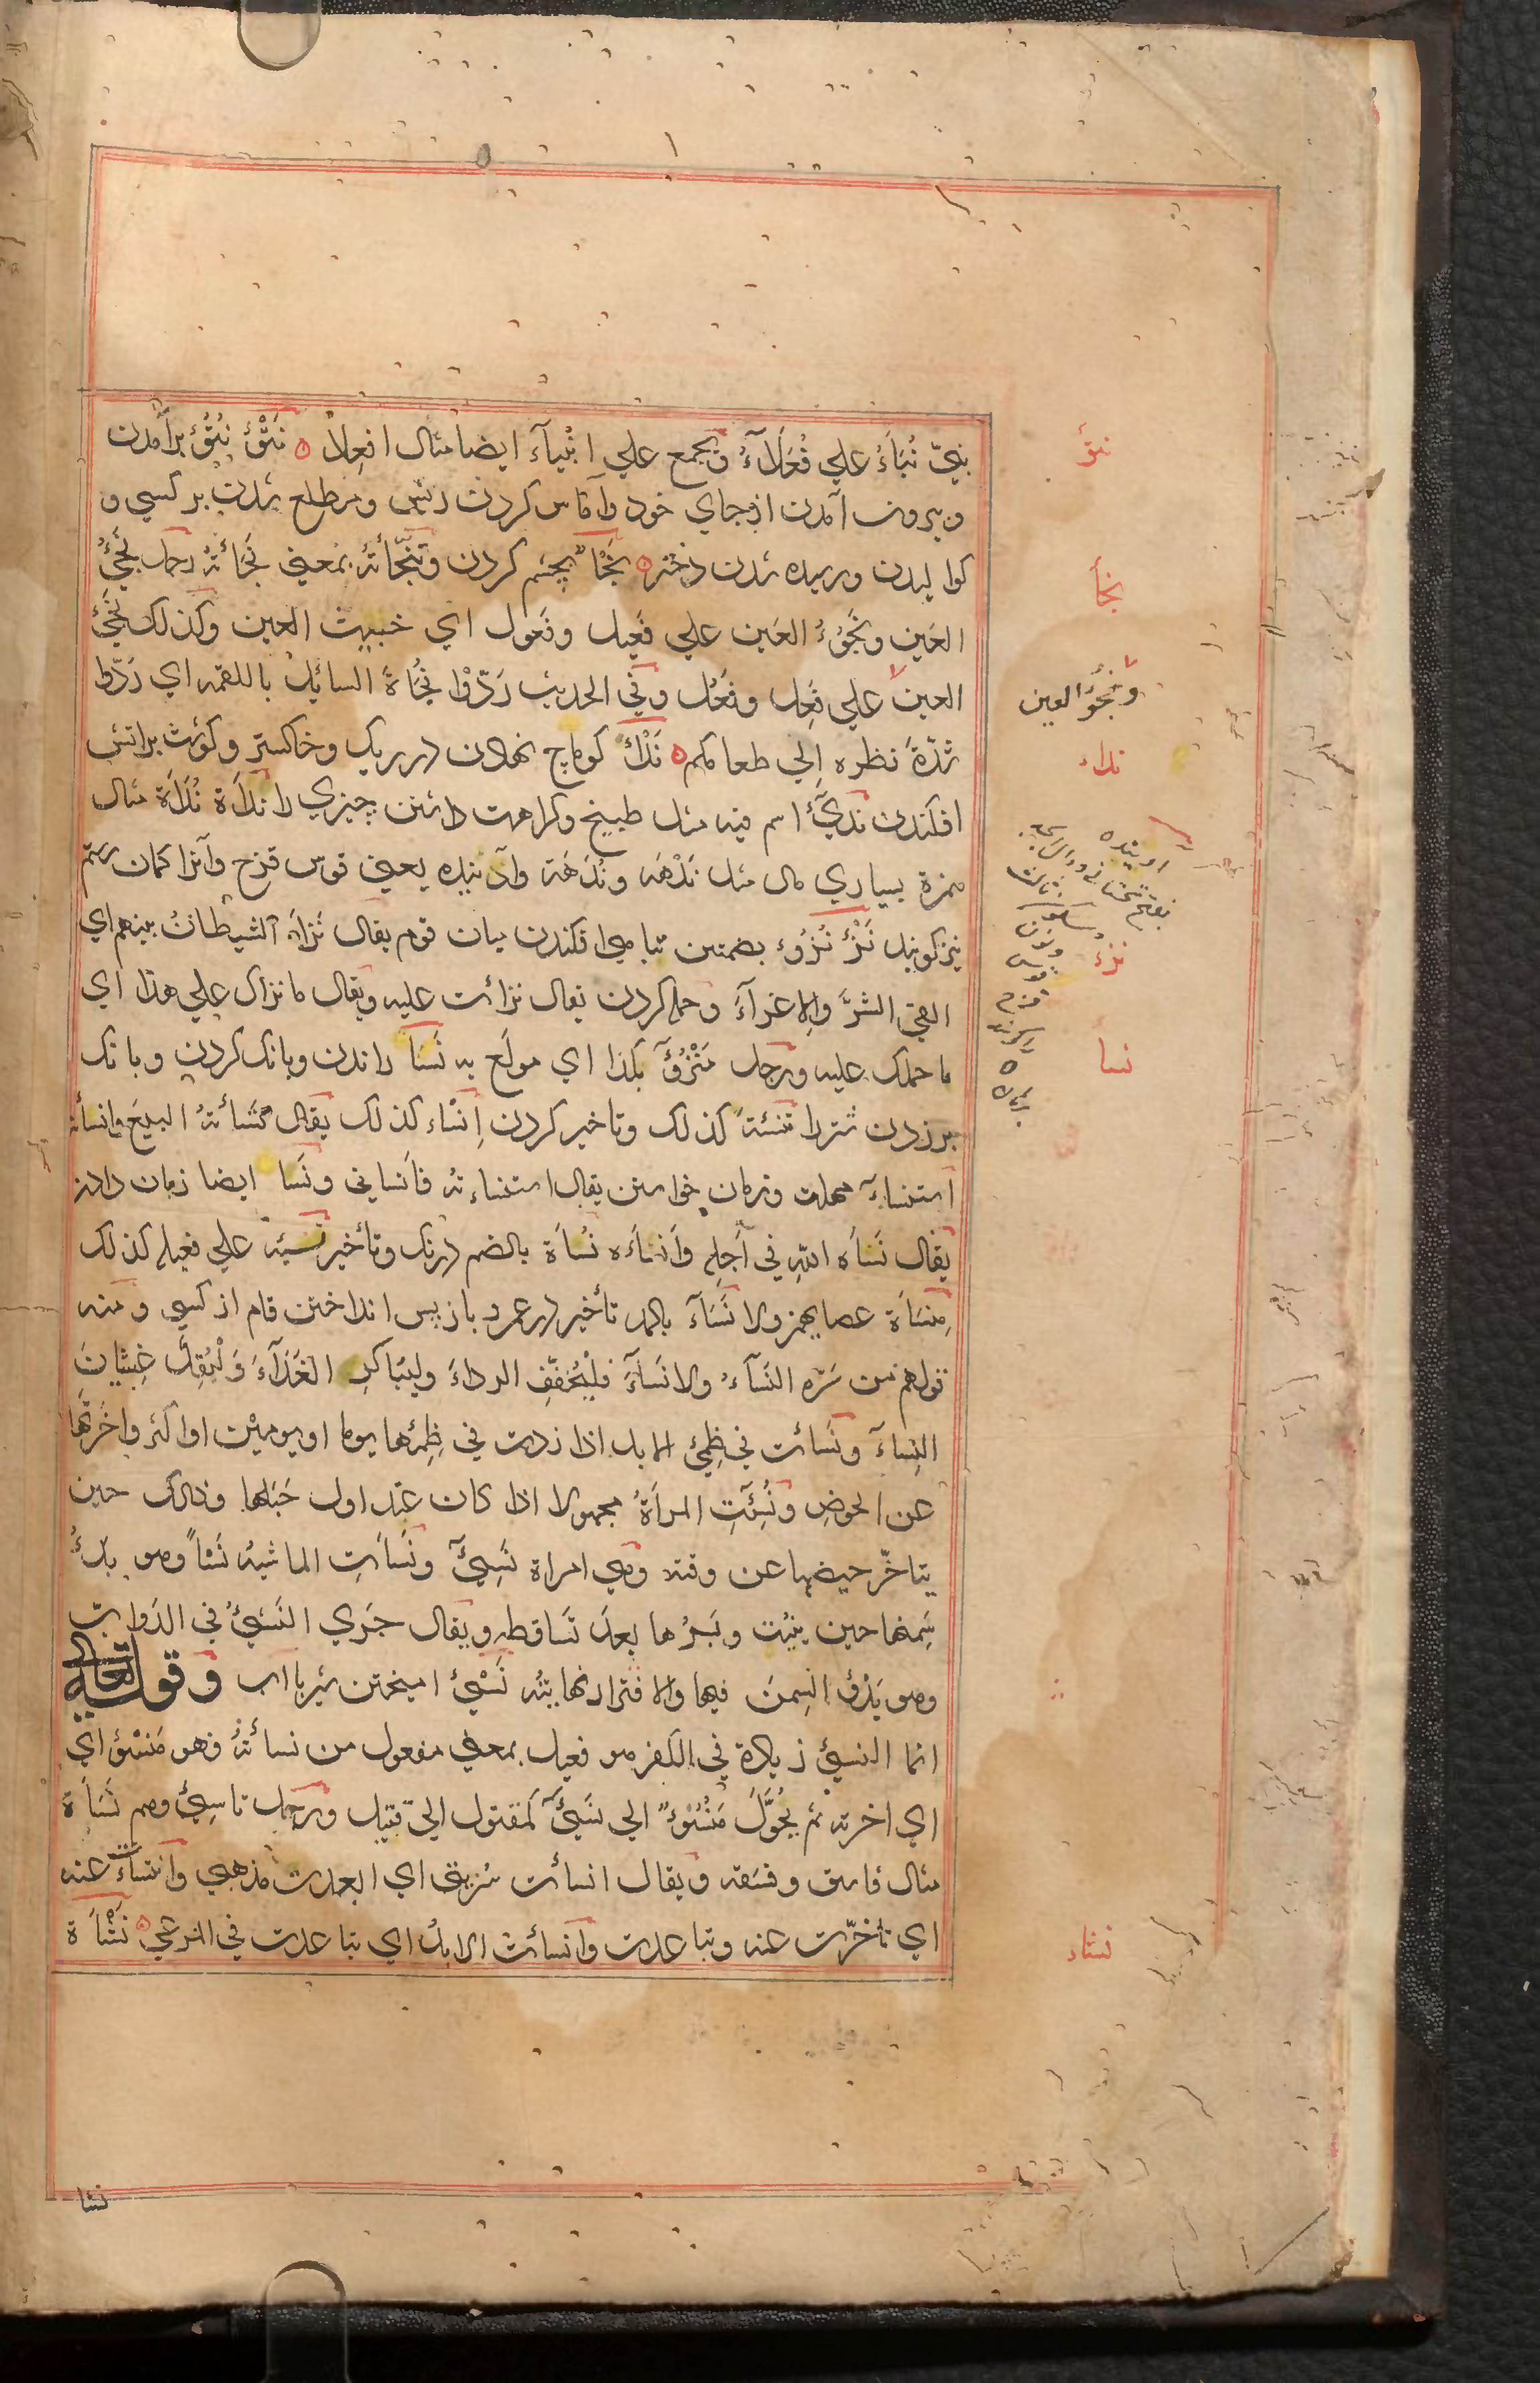 نبيّ نُبَآءُ علي فُعَلَآءُ ويجمع علي انْبِيآء ايضا مثال افعِلا ه نَتْؤ نُتُؤ برآمدن
وبيرون آمدن ازجاي خود وآماس كردن ريش ومطلع شدن بر كسي و
كوا ليدن ورسيده شدن دختر ه نَجْأ بچشم كردن وتَنَجّأتهُ بمعني نَجَأتهُ رجل نَجِيْءُ
العَين ونَجُوْءُ العَين علي فَعِيل وفَعول اي خبيث العين وكذلك نَجِئُ
العين علي فَعِل وفَعُل وفي الحديث رَدّوْا نَجْأةَ السايِل باللقمه اي رَدّوا
شدّةَ نظره اِلي طعامكم ه نَدْأ كوماج نهادن در ريك وخاكستر وكوشت براتش
افكندن نَدِيٌّ اسم فيه مثل طبيخ وكراهت داشتن چيزي را نَدْأة نُدْأَة مثال
همزة بسياري مال مثل نَدْهَه ونُدْهَة وآدينده يعني قوس قزح وآنرا كمان رستم
نيز كويند نَزْءٌ نُزُوْء بضمتين تباهي افكندن ميان قوم يقال نَزَأَ الشيطانُ بينهم اي
القي الشرَّ والاغرآءَ وحمله كردن يقال نزأت عليه ويقال ما نزأك علي هذا اي
ما حملك عليه ورجل مَنْزُوْءٌ بكذا اي مولَع به نَسَأ راندن وبانك كردن وبانك
برزدن شتر را تنسِئةً كذلك وتاخير كردن اِنْسَاء كذلك يقال نَسَأتهُ البيعَ وانسأته
استنساءَ مهلت وزمان خواستن يقال استنساءته فأنسايي ونَسَأ ايضا زمان دادن
يقال نَسَأه الله في اَجَلِه وأنسَأه نُسْأَة بالضم درنك وتأخير نَسِيئه علي فعيله كذلك
مِنْسَأة عصا يهمز ولا نَسَآء بالمد تأخير در عمر و باز پس انداختن وام از كسي و منه
قولهم من سَرّه النَسَآءُ ولا نَسَآءَ فليُخفّفِ الرداءَ وليبَاكرِ الغَدَآءَ وَلْيُقِلَّ غِشْيَانَ
النِسآءَ ونَسَأت في ظِمْئ الابل اذا زدت في ظِمْئها يوما او يومين او اكثر واخّرتَها
عن الحوضِ ونُسِئَتِ المراةُ مجهولا اذا كان عند اول حَبَلها وذلك حين
يتاخّر حيضها عن وقته وهي امراة نَسِيٌّ ونَسَأتِ الماشيهُ نَسْأً وهو بَدْءُ
سِمنها حين ينبُت وبَرُها بعدَ تَساقطه ويقال جَرَي النَسْيُ في الدَوابّ
وهو بَدْؤُ السِمنَ فيها والاقترار نهايته نَسْئ اميختن شير بااب وقوله تعالي
انما النسئ زيادة في الكفر هو فعيل بمعني مفعول من نسأتهُ فهو مَنْسُؤ اي
اي اخرته ثم يُحَوَّلُ مَنْسُوْءٌ الي نَسِيْءٍ كمقتول الي قتيل ورجل ناسِئ وهم نَسَأَة
مثال فاسق وفسَقه ويقال انسأت سُربتي اي ابعدت مذهبي وانتسأت عنه
اي تأخّرت عنه وتباعدت وانتسأت الابلُ اي تباعدت في المرعي ه نَشْأَة
نتؤ
نجأ
ونَجُؤُ العين
نداء
نزء
نسأ
نشاء
نشا